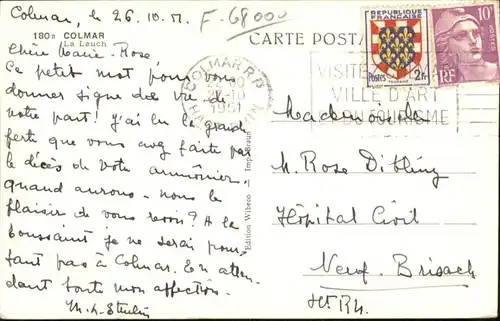 Colmar, le 26.10.51
F-68000
180B COLMAR
La Lauch
CARTE POSTA
Chère Marie-Rose
Ce petit mot pour vous
donner signe de vie de
votre part! J'ai lu la grande
perte que vous avez faite par
le décès de votre aumônier.
quand aurons-nous le
plaisir de vous revoir? A la
Toussaint je ne serai pour-
tant pas à Colmar. En atten-
dant toute mon affection.
Edition Wibeco
REPUBLIQUE
FRANÇAISE
Postes 2Fr
TOURAINE
10F
RF
COLMAR R.P.
1951
VISITEZ
VILLE D'ART
TOURISME
Mademoiselle
M. Rose
Hôpital Civil
Neuf-Brisach
Ht Rh.